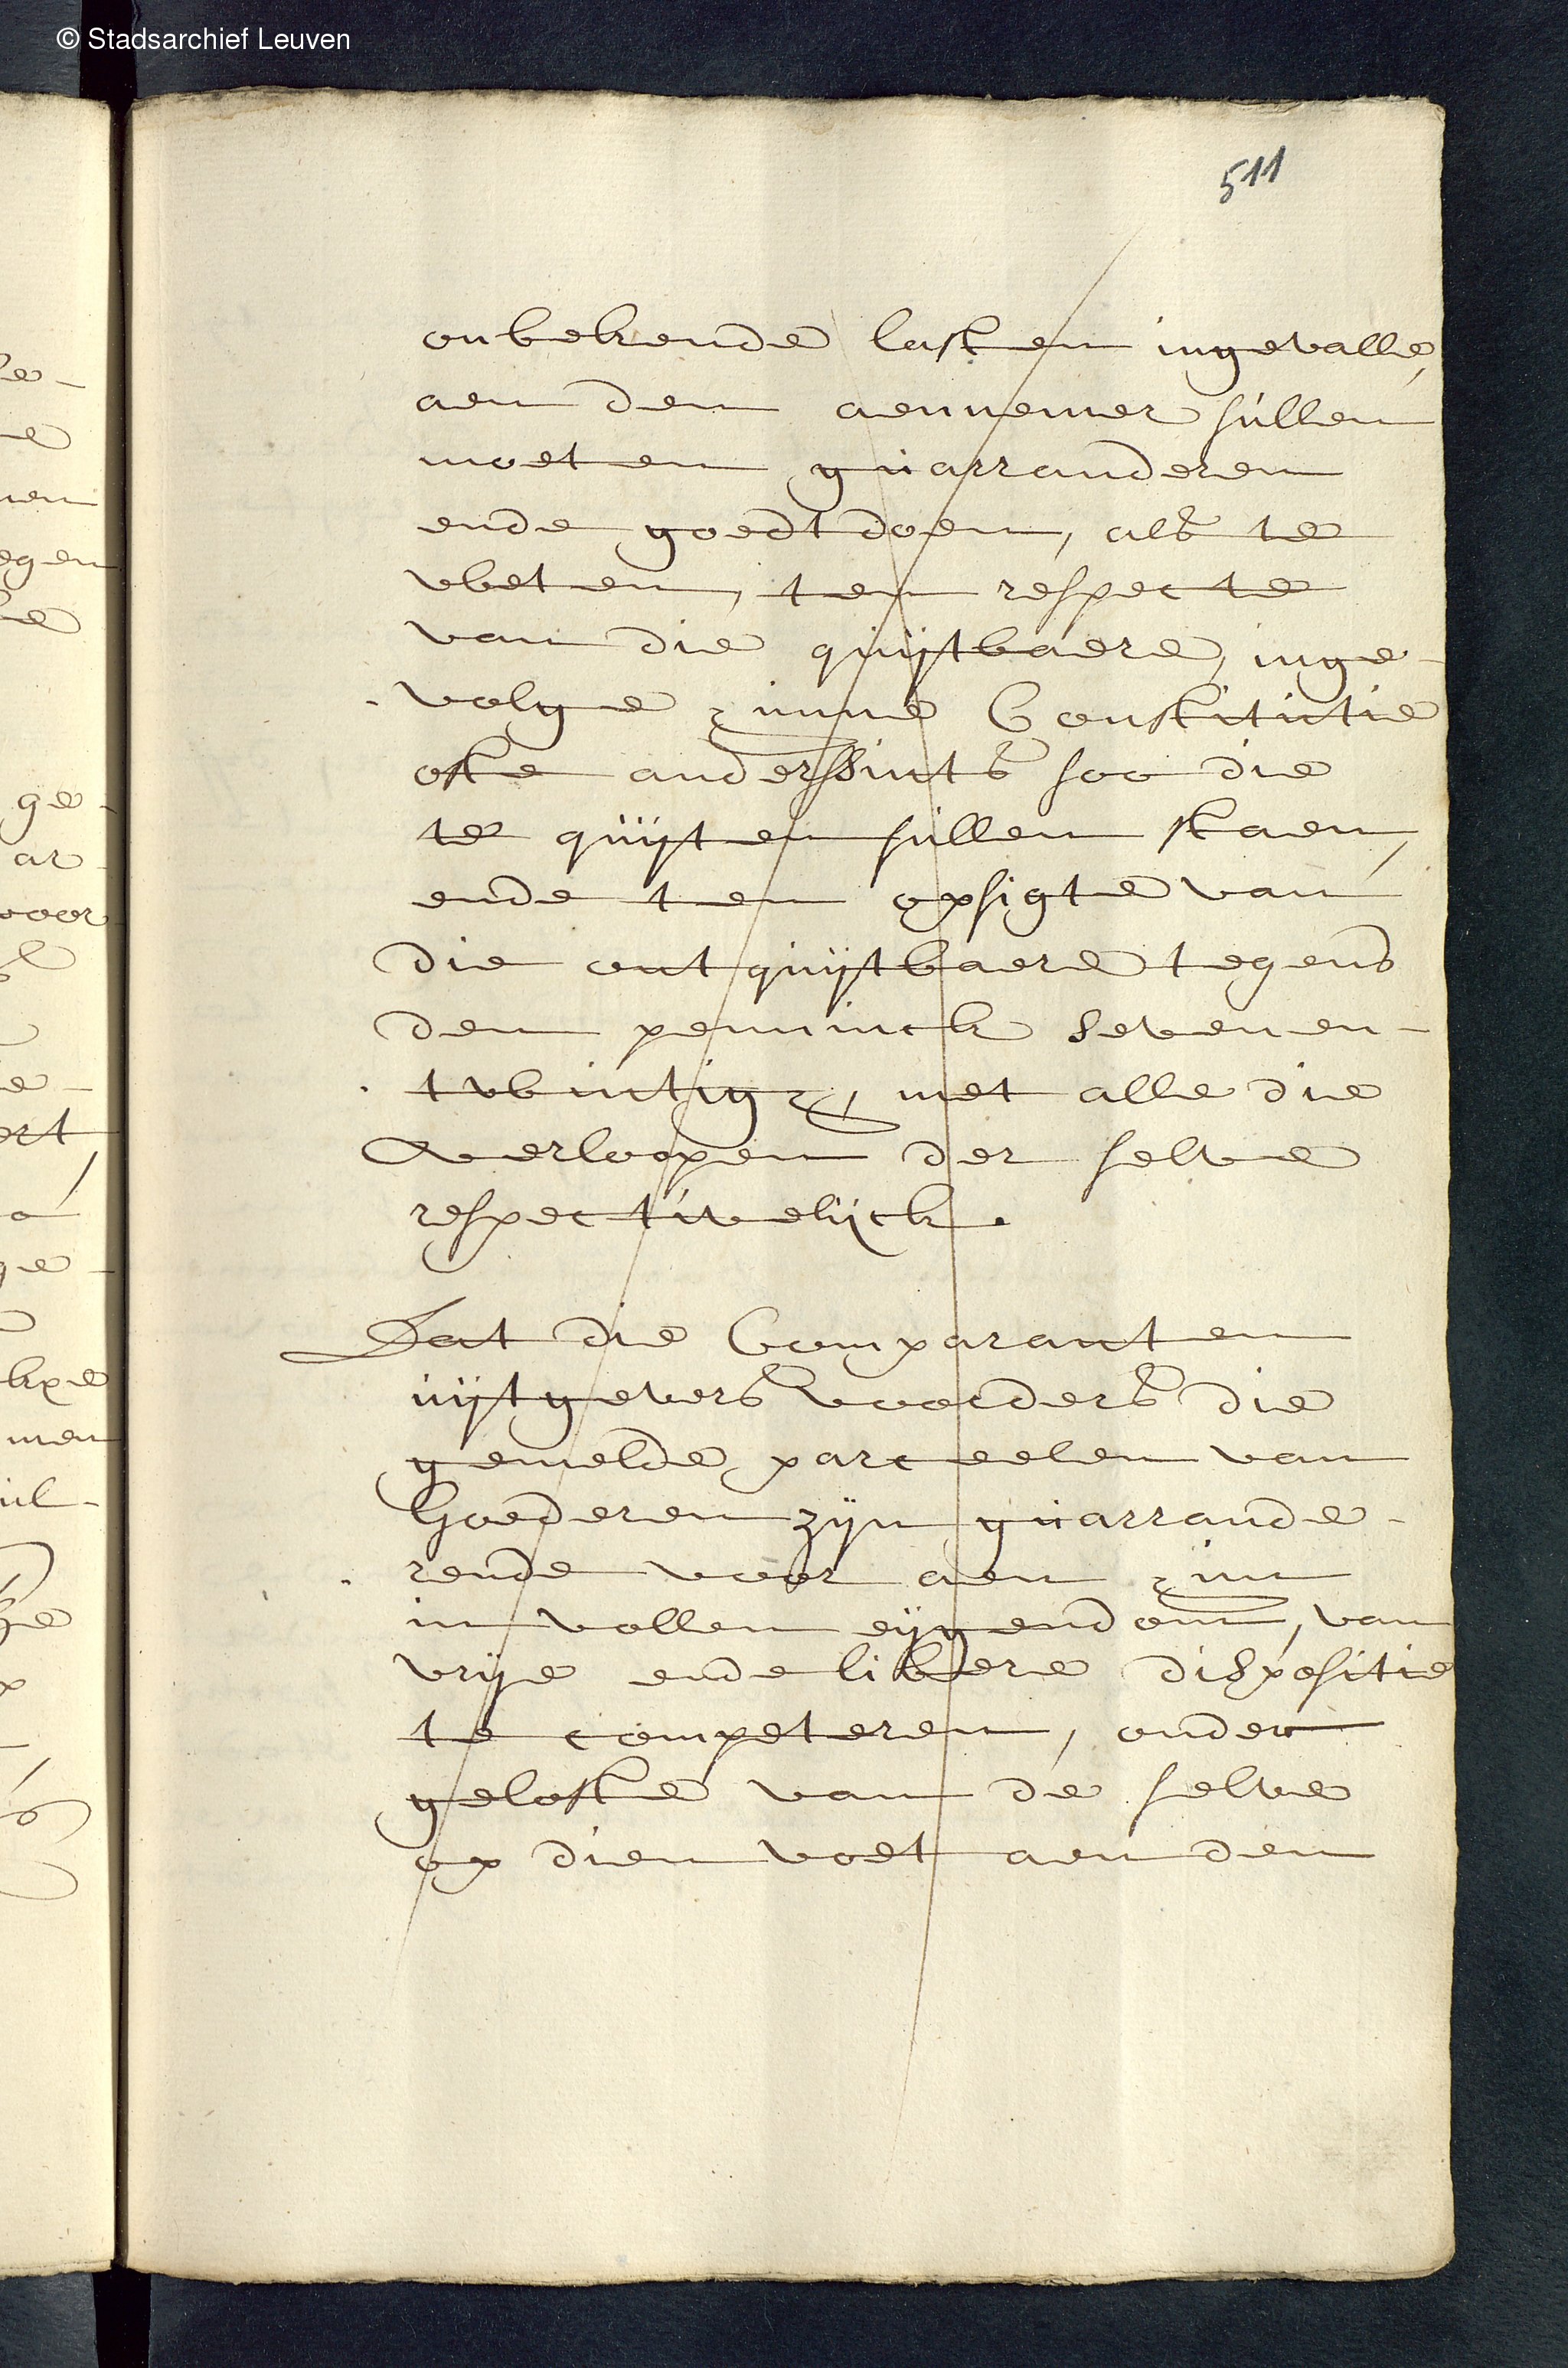 © Stadsarchief Leuven
511
onbekende lasten ingevalle,
aen den aennemer sullen
moeten guarranderen
ende goedt doen, als te
weten, ten respecte
van die quijtbaere, inge-
volge zijnne Constitutie
ofte anderssints soo die
te quijten sullen staen,
ende ten opsigte van
die ontquijtbaere tegens
den penninck seven en-
twintigh, met alle die
verloopen der selve
respectivelijck.
Dat die Comparanten
uijtgevers voorders die
gemelde parceelen van
Goederen zijn guarrande-
rende voor aen zijn
in vollen eijgendom, van
vrije ende libere dispositie
te competeren, onder
gelofte van de selve
op dien voet aen den